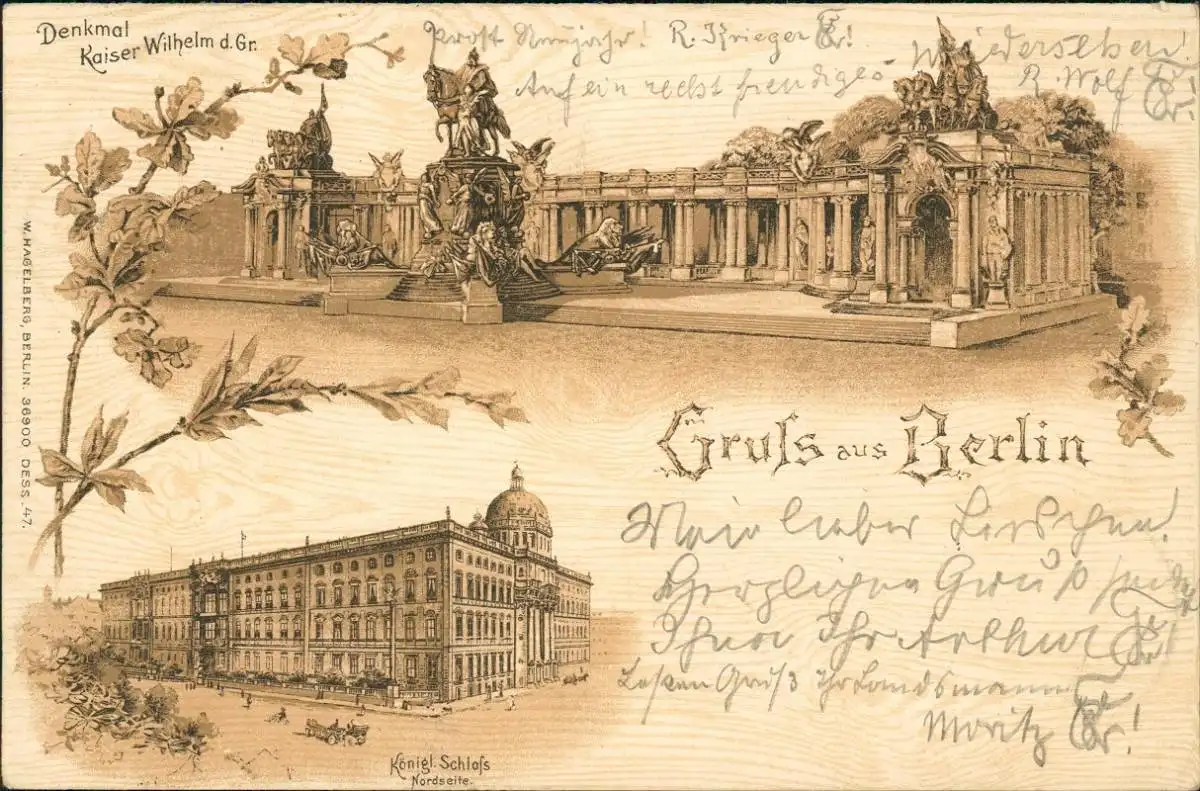 Denkmal
Kaiser Wilhelm d. Gr.
Prost Neujahr! R. Krieger
Auf ein recht freudiges
Wiedersehen!
R. Wolf
W. HAGELBERG, BERLIN. 36900 DESS. 47.
Gruſs aus Berlin
Mein lieber
Herzlichen Gruß sendet
Ihnen Ihr Arthur
Besten Gruß Ihr Landsmann
Moritz
Königl. Schloſs
Nordseite.